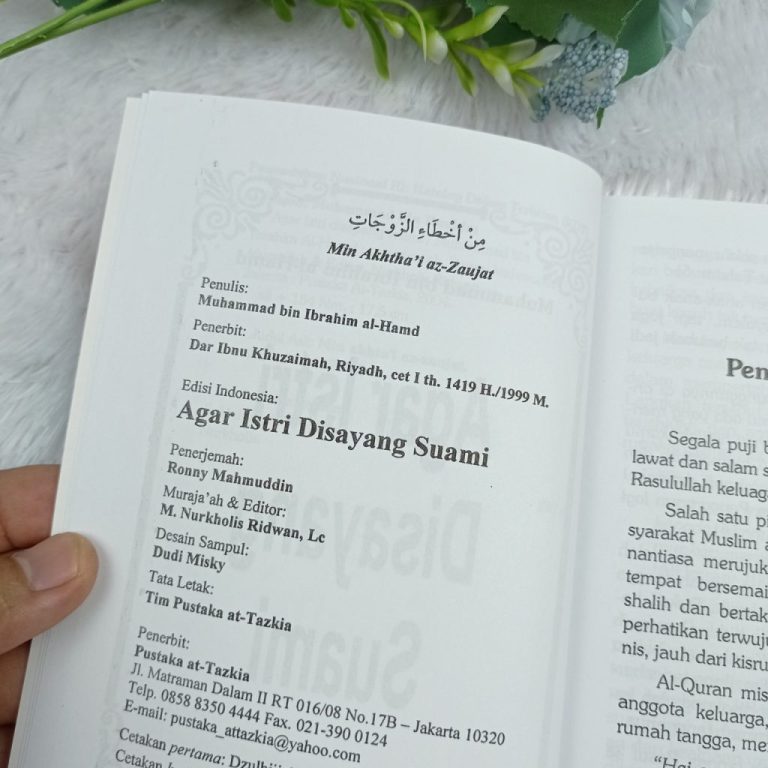 مِنْ أَخْطَاءِ الزَّوْجَاتِ
Min Akhtha'i az-Zaujat
Penulis:
Muhammad bin Ibrahim al-Hamd
Penerbit:
Dar Ibnu Khuzaimah, Riyadh, cet I th. 1419 H./1999 M.
Edisi Indonesia:
Agar Istri Disayang Suami
Penerjemah:
Ronny Mahmuddin
Muraja'ah & Editor:
M. Nurkholis Ridwan, Lc
Desain Sampul:
Dudi Misky
Tata Letak:
Tim Pustaka at-Tazkia
Penerbit:
Pustaka at-Tazkia
Jl. Matraman Dalam II RT 016/08 No.17B – Jakarta 10320
Telp. 0858 8350 4444 Fax. 021-390 0124
E-mail: pustaka_attazkia@yahoo.com
Cetakan pertama:
Cetakan
Pen
Segala puji
lawat dan salam
Rasulullah keluaga
Salah satu
syarakat Muslim
nantiasa merujuk
tempat bersemai
shalih dan bertak
perhatikan terwuju
nis, jauh dari kisru
Al-Quran mis
anggota keluarga,
rumah tangga, me
"Hai